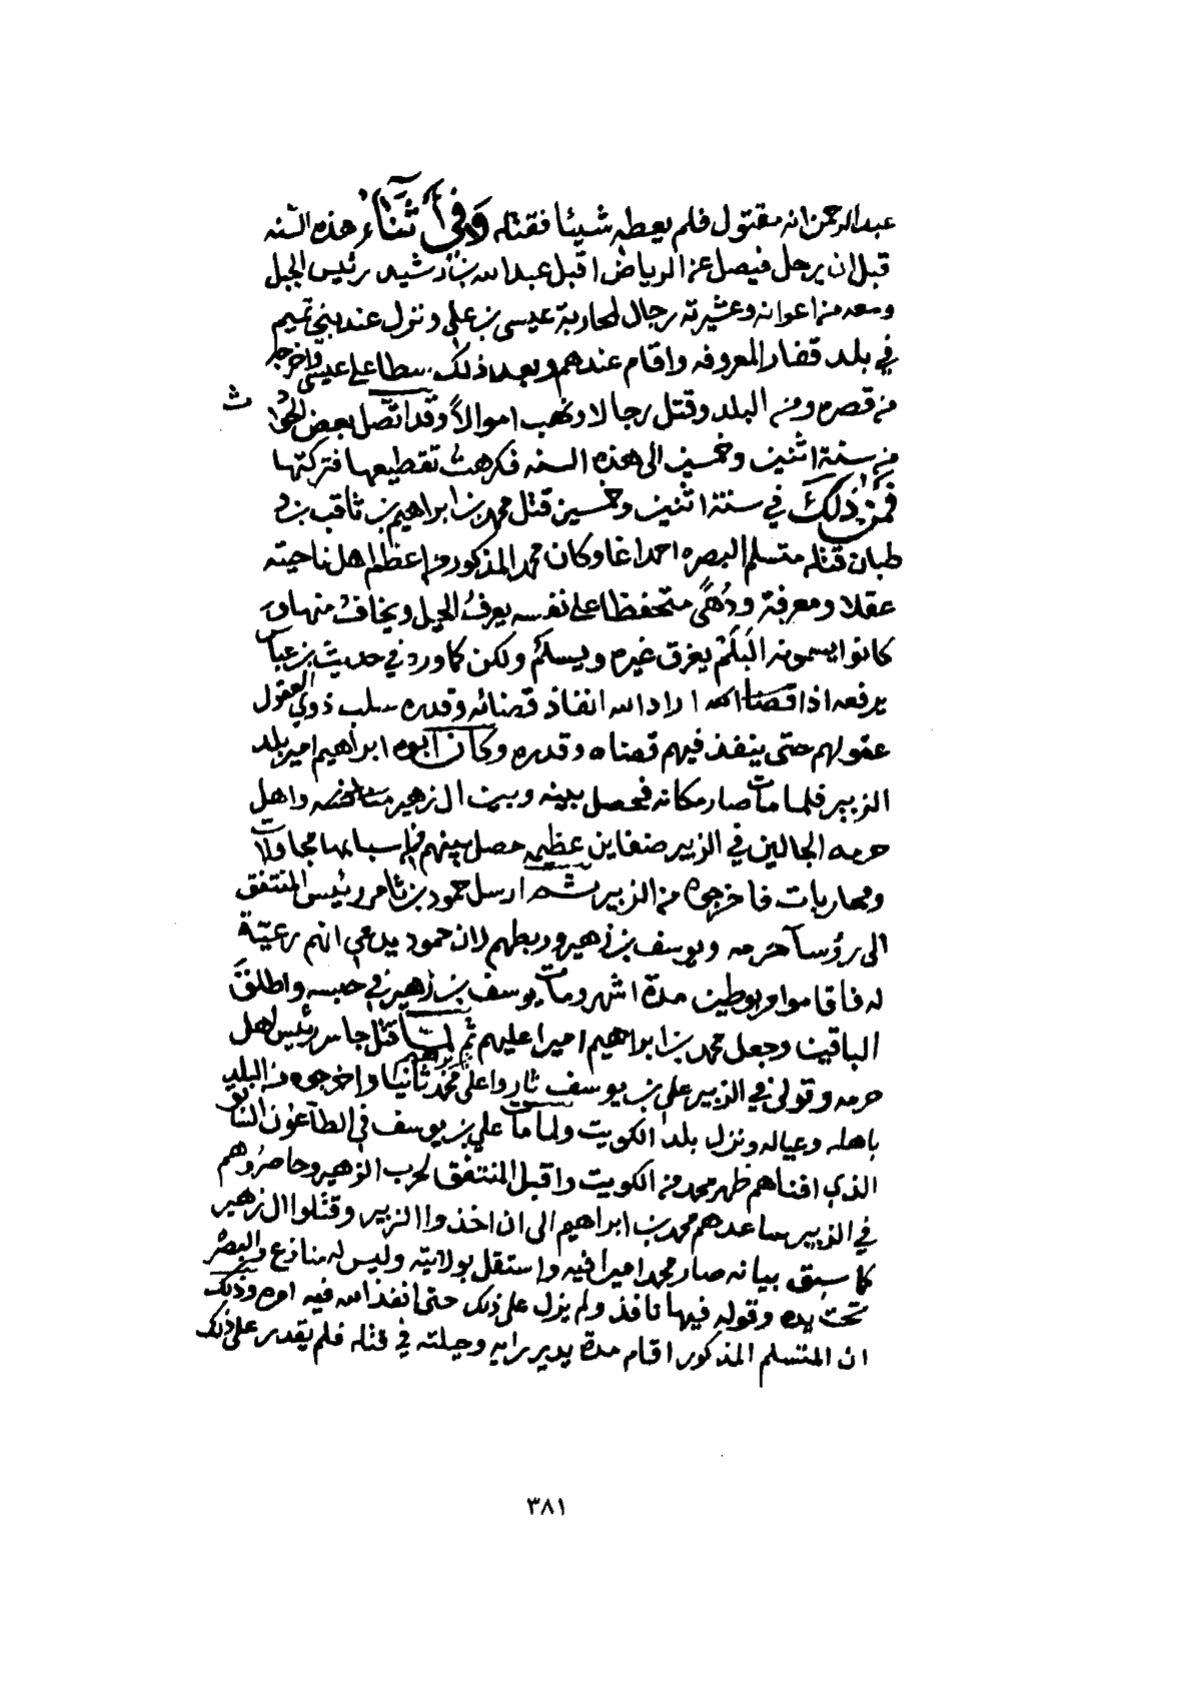 عبدالرحمن انه مقتول فلم يعطه شيئا فقتله وَفي أثنآء هذه السنه
قبل ان يرحل فيصل عن الرياض اقبل عبدالله بن رشيد رئيس الجبل
ومعه من اعوانه وعشيرته رجال لمحاربة عيسى بن علي ونزل عند بني تميم
في بلد قفار المعروفه واقام عندهم وبعد ذلك سطا على عيسى واخرجه
من قصره ومن البلد وقتل رجالا ونهب اموالاً وقد اتصل بعض الحوا
دث
من سنة اثنين وخمسين الى هذه السنه فكرهت تقطيعها فتركتها
فمن ذلك في سنة اثنين وخمسين قتل محمد بن ابراهيم بن ثاقب بن و
طبان قتله متسلم البصره احمد اغا وكان محمد المذكور من اعظم اهل ناحيته
عقلا ومعرفة ودُهًى متحفظا على نفسه يعرف الحيل ويخاف منها و
كانوا يسمونه البَلَمْ يغرق غيره ويسلم ولكن كما ورد في حديث بن عباس
يرفعه اذا اراد الله انفاذ قضائه وقدره سلب ذوي العقول
عقولهم حتى ينفذ فيهم قضاه وقدره وكان ابوه ابراهيم امير بلد
الزبير فلما مات صار مكانه فحصل بينه وبين ال زهير واهل
حرمه الجالين في الزبير ضغاين عظيمه حصل بينهم من اسبابها مجاولات
ومحاربات فاخرجوه من الزبير ثم ارسل حمود بن ثامر رئيس المنتفق
الى رؤسآ حرمه ويوسف بن زهير وربطهم لان حمود يدعي انهم رعيّة
له فاقاموا مربوطين مدة اشهر ومات يوسف بن زهير في حبسه واطلق
الباقين وجعل محمد بن ابراهيم اميرا عليهم ثم لما قتل جاسر رئيس اهل
حرمه وتولى في الزبير علي بن يوسف ثاروا على محمد بن ابراهيم ثانيا واخرجوه من البلد
باهله وعياله ونزل بلد الكويت ولما مات علي بن يوسف في الطآعون السابق
الذي افناهم ظهر محمد من الكويت واقبل المنتفق لحرب الزهير وحاصرُوهم
في الزبير ساعدهم محمد بن ابراهيم الى ان اخذوا الزبير وقتلوا ال زهير
كما سبق بيانه صار محمد اميرا فيه واستقل بولايته وليس له منازع والبصره
تحت يده وقوله فيها نافذ ولم يزل على ذلك حتى انفذ الله فيه امره وذلك
ان المتسلم المذكور اقام مدة يدير رايه وحيلته في قتله فلم يقدر على ذلك
٣٨١